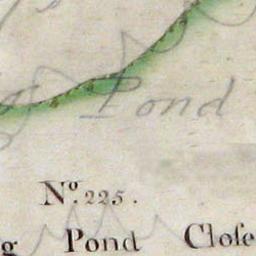 Pond
Nº. 225.
g Pond Cloſe